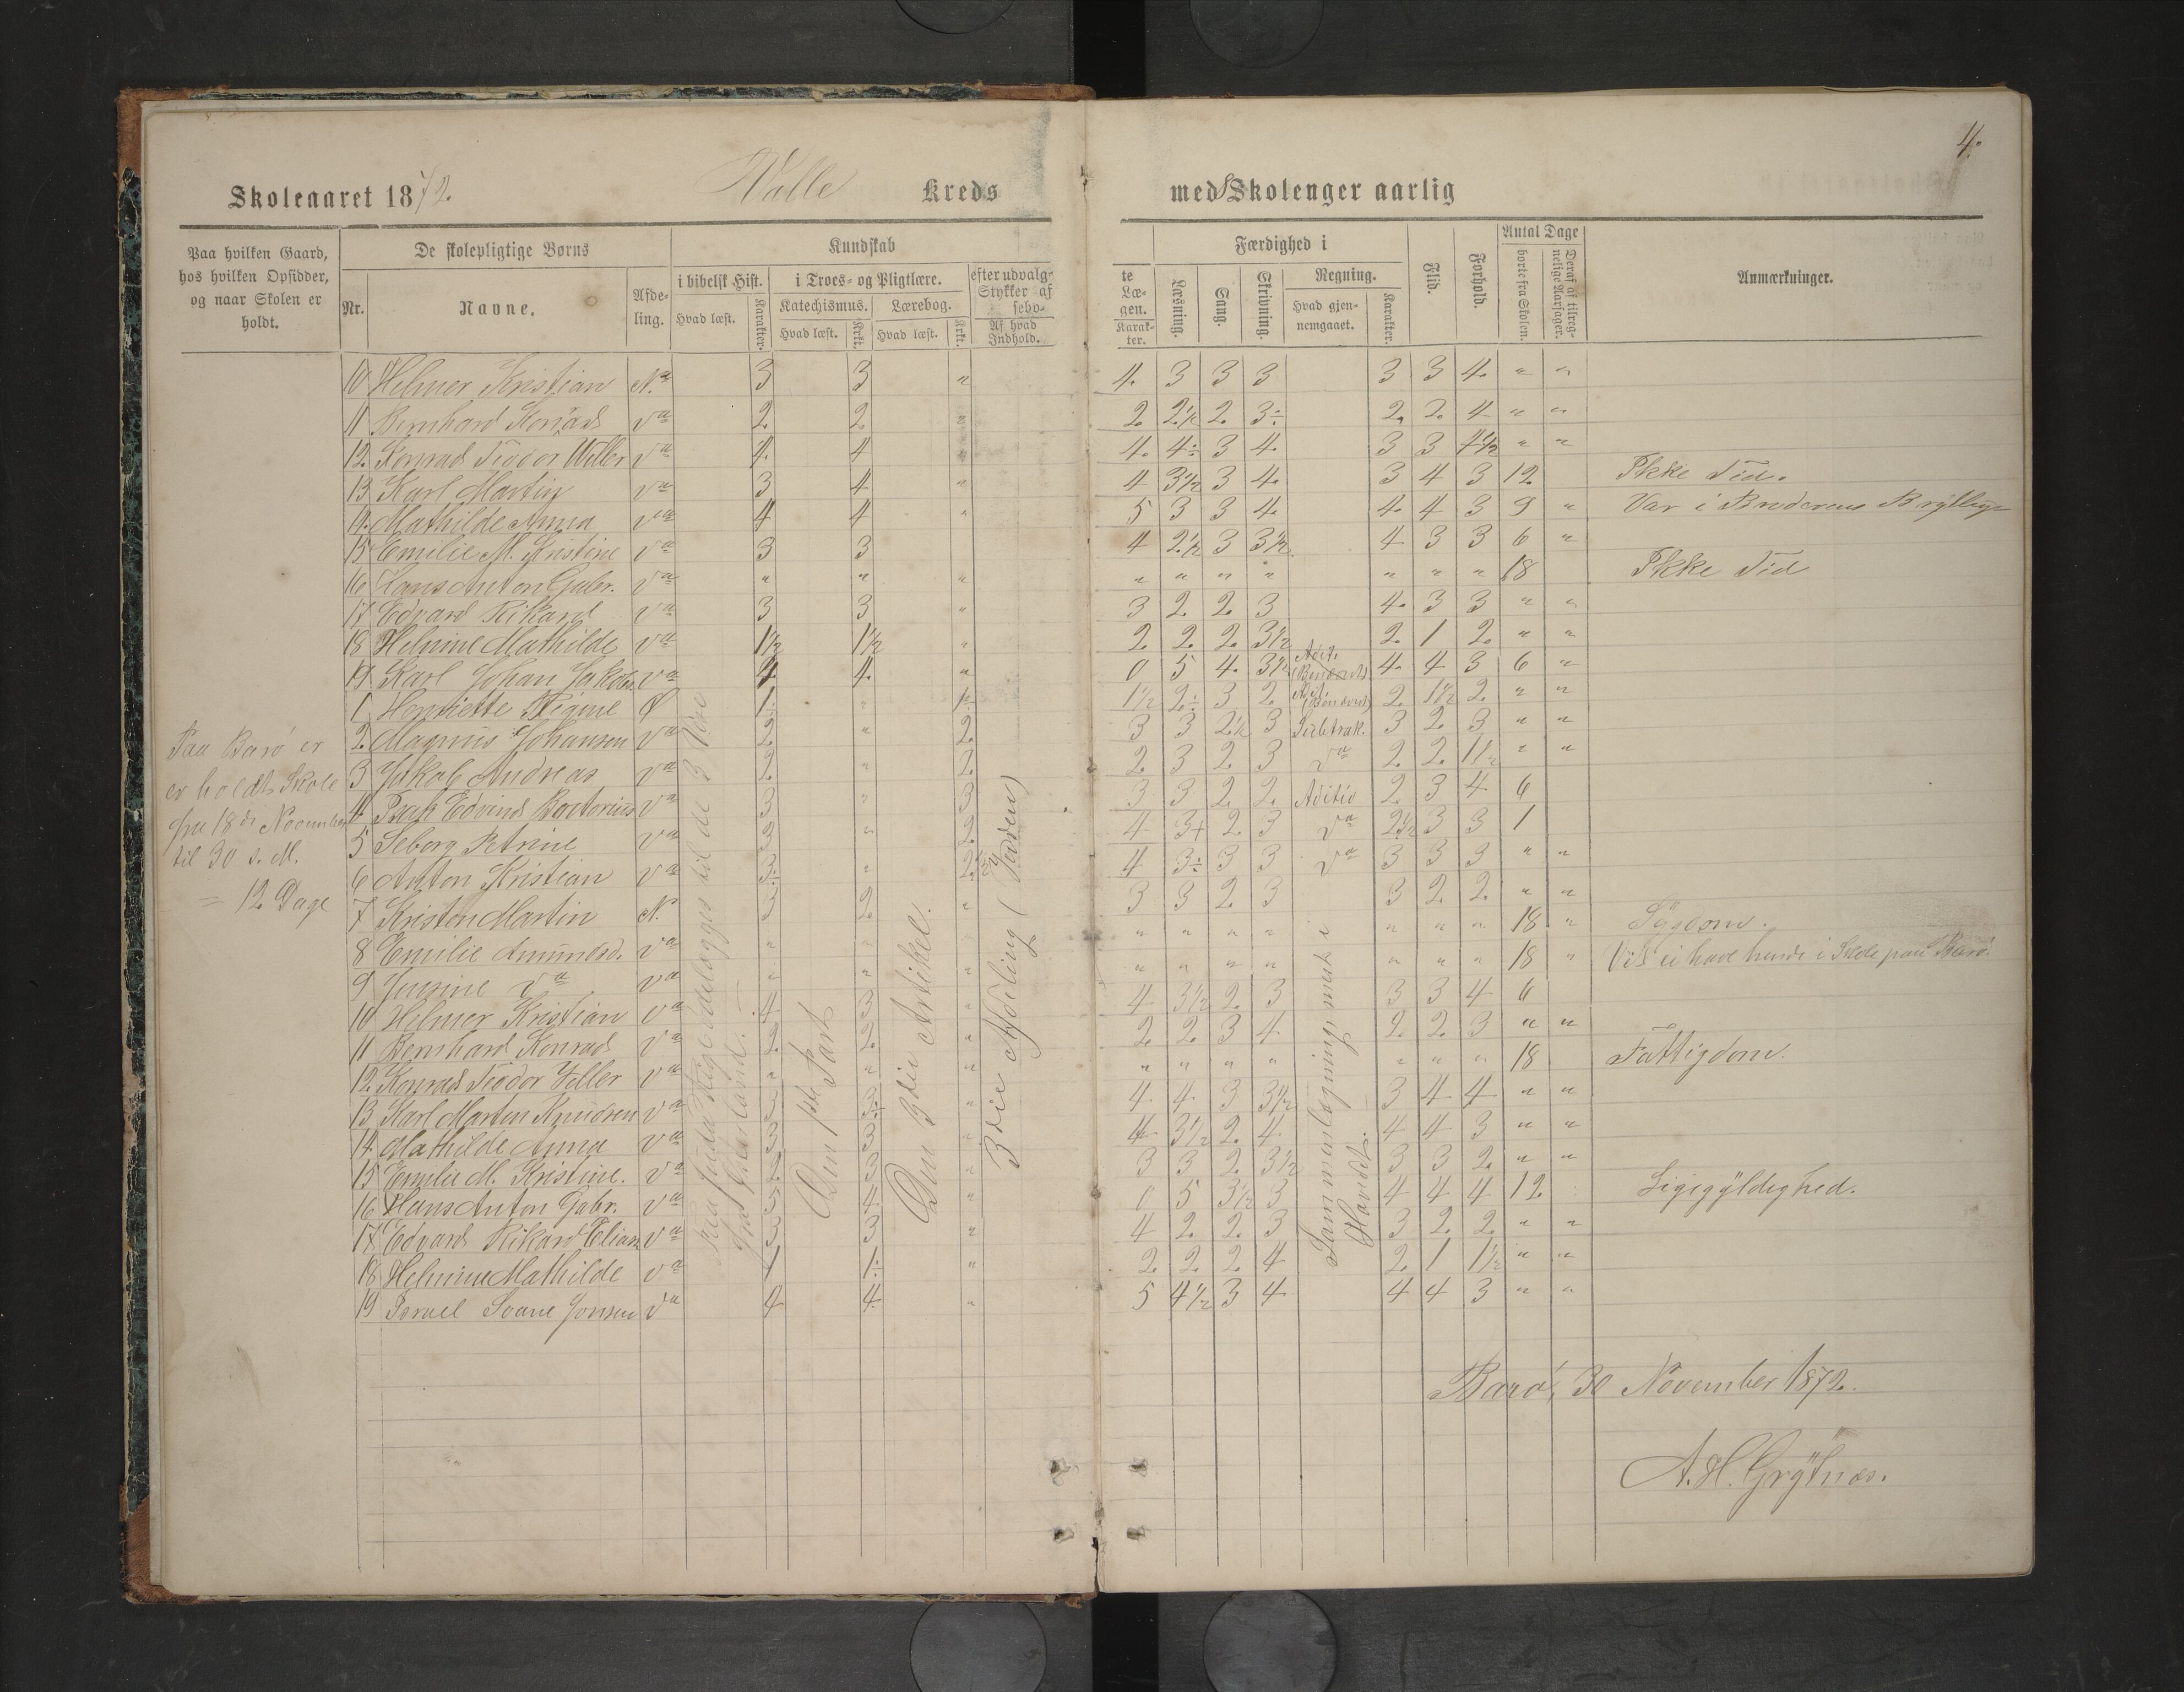 4.
Skoleaaret 1872. Valle Kreds med 8 Skolenger aarlig
Paa hvilken Gaard, hos hvilken Opsidder, og naar Skolen er holdt.
De skolepligtige Børns
Nr. Navne. Afdeling.
Kundskab
i bibelsk Hist. Hvad læst. Karakter.
i Troes- og Pligtlære.
Katechismus. Hvad læst. Krkt.
Lærebog. Hvad læst. Krkt.
efter udvalg- Stykker af sebo- Af hvad Indhold.
te Læ- gen. Karak- ter.
Færdighed i
Læsning. Sang. Skrivning.
Regning. Hvad gjen- nemgaaet. Karakter.
Flid. Forhold.
Antal Dage
borte fra Skolen. Deraf af tilreg- nelige Aarsager.
Anmærkninger.
10 Helmer Kristian N. 3 3 " 4. 3 3 3 3 3 4. " "
11 Bernhard Konrad da 2. 2. " 2 2½ 2. 3÷ 2. 2. 4 " "
12. Konrad Tiodor Weller da 4. 4 " 4. 4÷ 3 4. 3 3 4½ " "
13 Karl Martin da 3 4 " 4 3½ 3 4. 3 4 3 12 Ikke Tid.
14. Mathilde Anna da 4 4 " 5 3 3 4. 4. 4 3 9 " Var i Broderens Bryllup
15 Emilie M. Kristine da 3 3 4 2½ 3 3½ 4 3 3 6 "
16 Hans Anton Gabr. da " " " " " " " " " " 18 Ikke Tid
17 Edvard Rikard da 3 3 " 3 2. 2. 3 4. 3 3 " "
18 Helmine Mathilde da 1½ 1½ " 2. 2. 2. 3½ 2. 1 2. " "
19 Karl Johan Jakobs. da 4 4. " 0 5 4. 3½ Adit. (Benævnt) 4. 4 3 6 "
1 Henriette Signe Ø 1. " 1½ 2÷ 3 2. Adit. 2. 1½ 2. " "
2. Magnus Johansen da 2. " 2. 3 3 2½ 3 Subtrak. 3 2. 3 " "
3 Jakob Andreas da 2. " 2. 2. 3 2. 3 da 2. 2. 1½ " "
4. Isak Edvind da 3 " 3 3 3 2. 2. Aditio 2. 3 4 6
5 Seborg Petrine da 3 " 2. 4 3+ 2. 3 da 2½ 3 3 1
6 Anton Kristian da 3÷ " 2½ 4 3÷ 3 3 da 3 3 3 " "
7 Kristen Martin N. 3 2. " 3 3 2. 3 3 2. 2. " "
8 Emilie Amunds. da " " " " " " " " " 18 " Sygdom.
9 Jensine da da " " " " " " " " " " 18 "
10 Helmer Kristian da 4 3 " 4 3½ 2. 3 3 3 4 6
11 Bernhard Konrad da 2. 2. " 2. 2. 3 4 2. 2. 3 " "
12. Konrad Tiodor Veller da " " " " " " " " " " 18 Fattigdom.
13 Karl Martin Knudsen da 3 3÷ " 4 4 3 3½ 3 4 4 " "
14. Mathilde Anna da 3 3 " 4 3½ 2. 4 4 4 3 " "
15 Emilie M. Kristine. da 2 3 " 3 3 2. 3½ 3 3 2. " "
16 Hans Anton Gabr. da 5 4 " 0 5 3½ 3 4 4 4 12. Ligegyldighed.
17. Edvard Rikard Elias. da 3 3 " 4 2. 2. 3 3 2. 2. " "
18 Helmine Mathilde da 1 1÷ " 2. 2 2 4 2. 1 1½ " "
19 Israel Jonsen da 4 4. " 5 4½ 3 4 4 4 3 " "
Paa Barø er
er holdt Skole
fra 18de November
til 30 s. M.
= 12 Dage
Fra Juda Rige ødelægges til de 3 Vise
fra Østerland. —
Den 1ste Part
Den 3die Artikel.
3die Afdeling (Verden)
Sammenlægning mest i
Hovedet.
Barø, 30 November 1872.
A. H. Grytnæs.